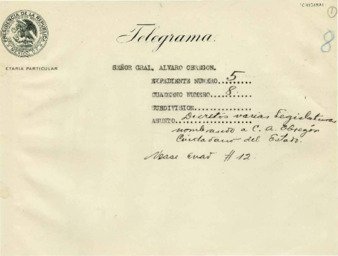 PRESIDENCIA DE LA REPUBLICA
Telegrama.
ETARIA PARTICULAR
SEÑOR GRAL. ALVARO OBREGON.
EXPEDIENTE NUMERO. 5
CUADERNO NUMERO. 8
SUBDIVISION
ASUNTO. Decretos varias Legislativa
nombrando a C. A. Obregón
Ciudadano del Estado.
# 12.
8
1